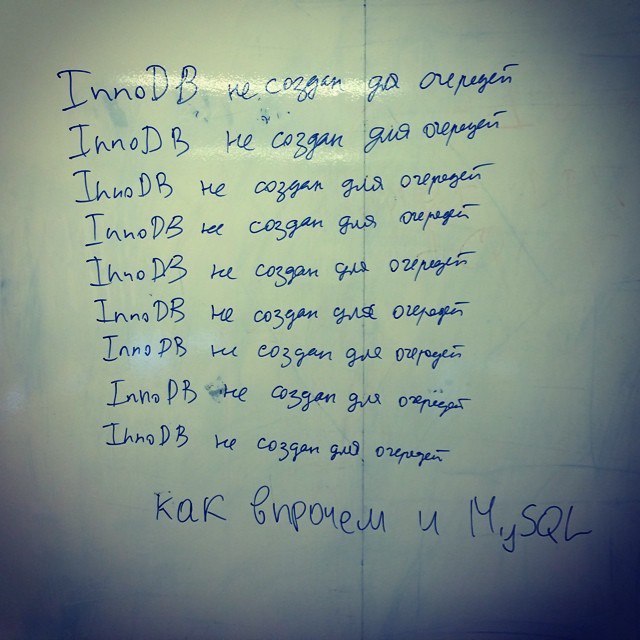 InnoDB не создан для очередей
InnoDB не создан для очередей
InnoDB не создан для очередей
InnoDB не создан для очередей
InnoDB не создан для очередей
InnoDB не создан для очередей
InnoDB не создан для очередей
InnoDB не создан для очередей
InnoDB не создан для очередей
как впрочем и MySQL